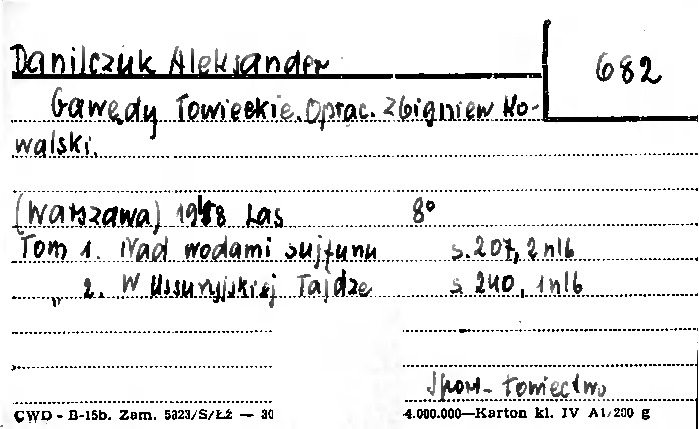 Danilczuk Aleksander
682
Gawędy Łowieckie. Oprac. Zbigniew Ko-
walski.
(Warszawa) 1948 Las 8°
Tom 1. Nad wodami Sujfunu s. 207, 2 nlb
„ 2. W Ussuryjskiej Tajdze s 240, 1 nlb
Spow- Łowiectwo
CWD - B-15b. Zam. 5323/S/Łź — 30 4.000.000—Karton kl. IV A1/200 g